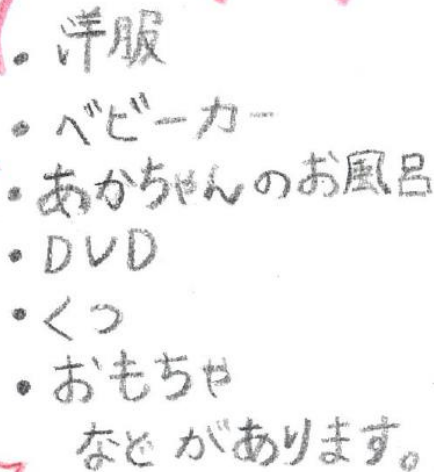 ・洋服
・ベビーカー
・あかちゃんのお風呂
・DVD
・くつ
・おもちゃ
などがあります。